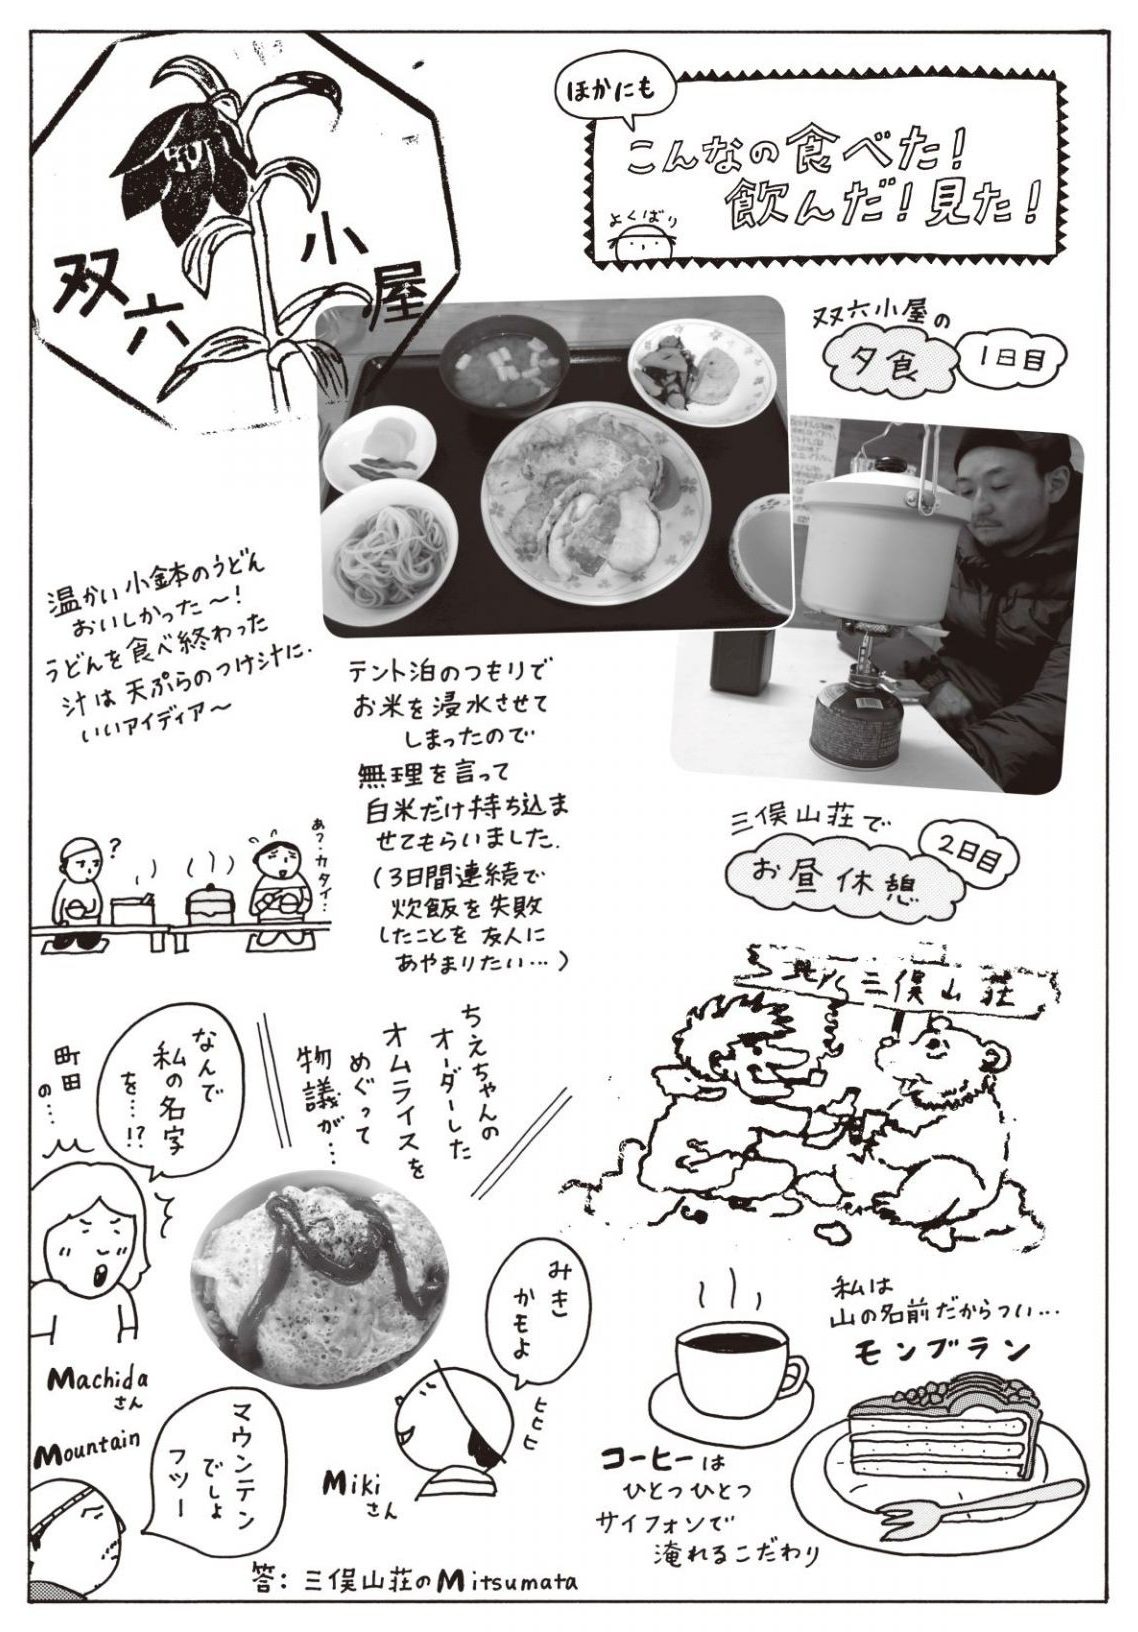 双六小屋
ほかにも
こんなの食べた！
飲んだ！見た！
よくばり
双六小屋の
夕食
1日目
温かい小鉢のうどん
おいしかった〜！
うどんを食べ終わった
汁は天ぷらのつけ汁に.
いいアイディア〜
テント泊のつもりで
お米を浸水させて
しまったので
無理を言って
白米だけ持ち込ま
せてもらいました.
(3日間連続で
炊飯を失敗
したことを友人に
あやまりたい…)
?
あ?、カタイ…
三俣山荘で
お昼休憩
2日目
三俣山荘
ちえちゃんの
オーダーした
オムライスを
めぐって
物議が…
なんで
私の名字
を…!?
町田
の…
Machida
さん
Mountain
マウンテン
でしょ
フツー
みき
かもよ
ヒヒヒ
Miki
さん
答: 三俣山荘のMitsumata
私は
山の名前だからつい…
モンブラン
コーヒーは
ひとつひとつ
サイフォンで
淹れるこだわり